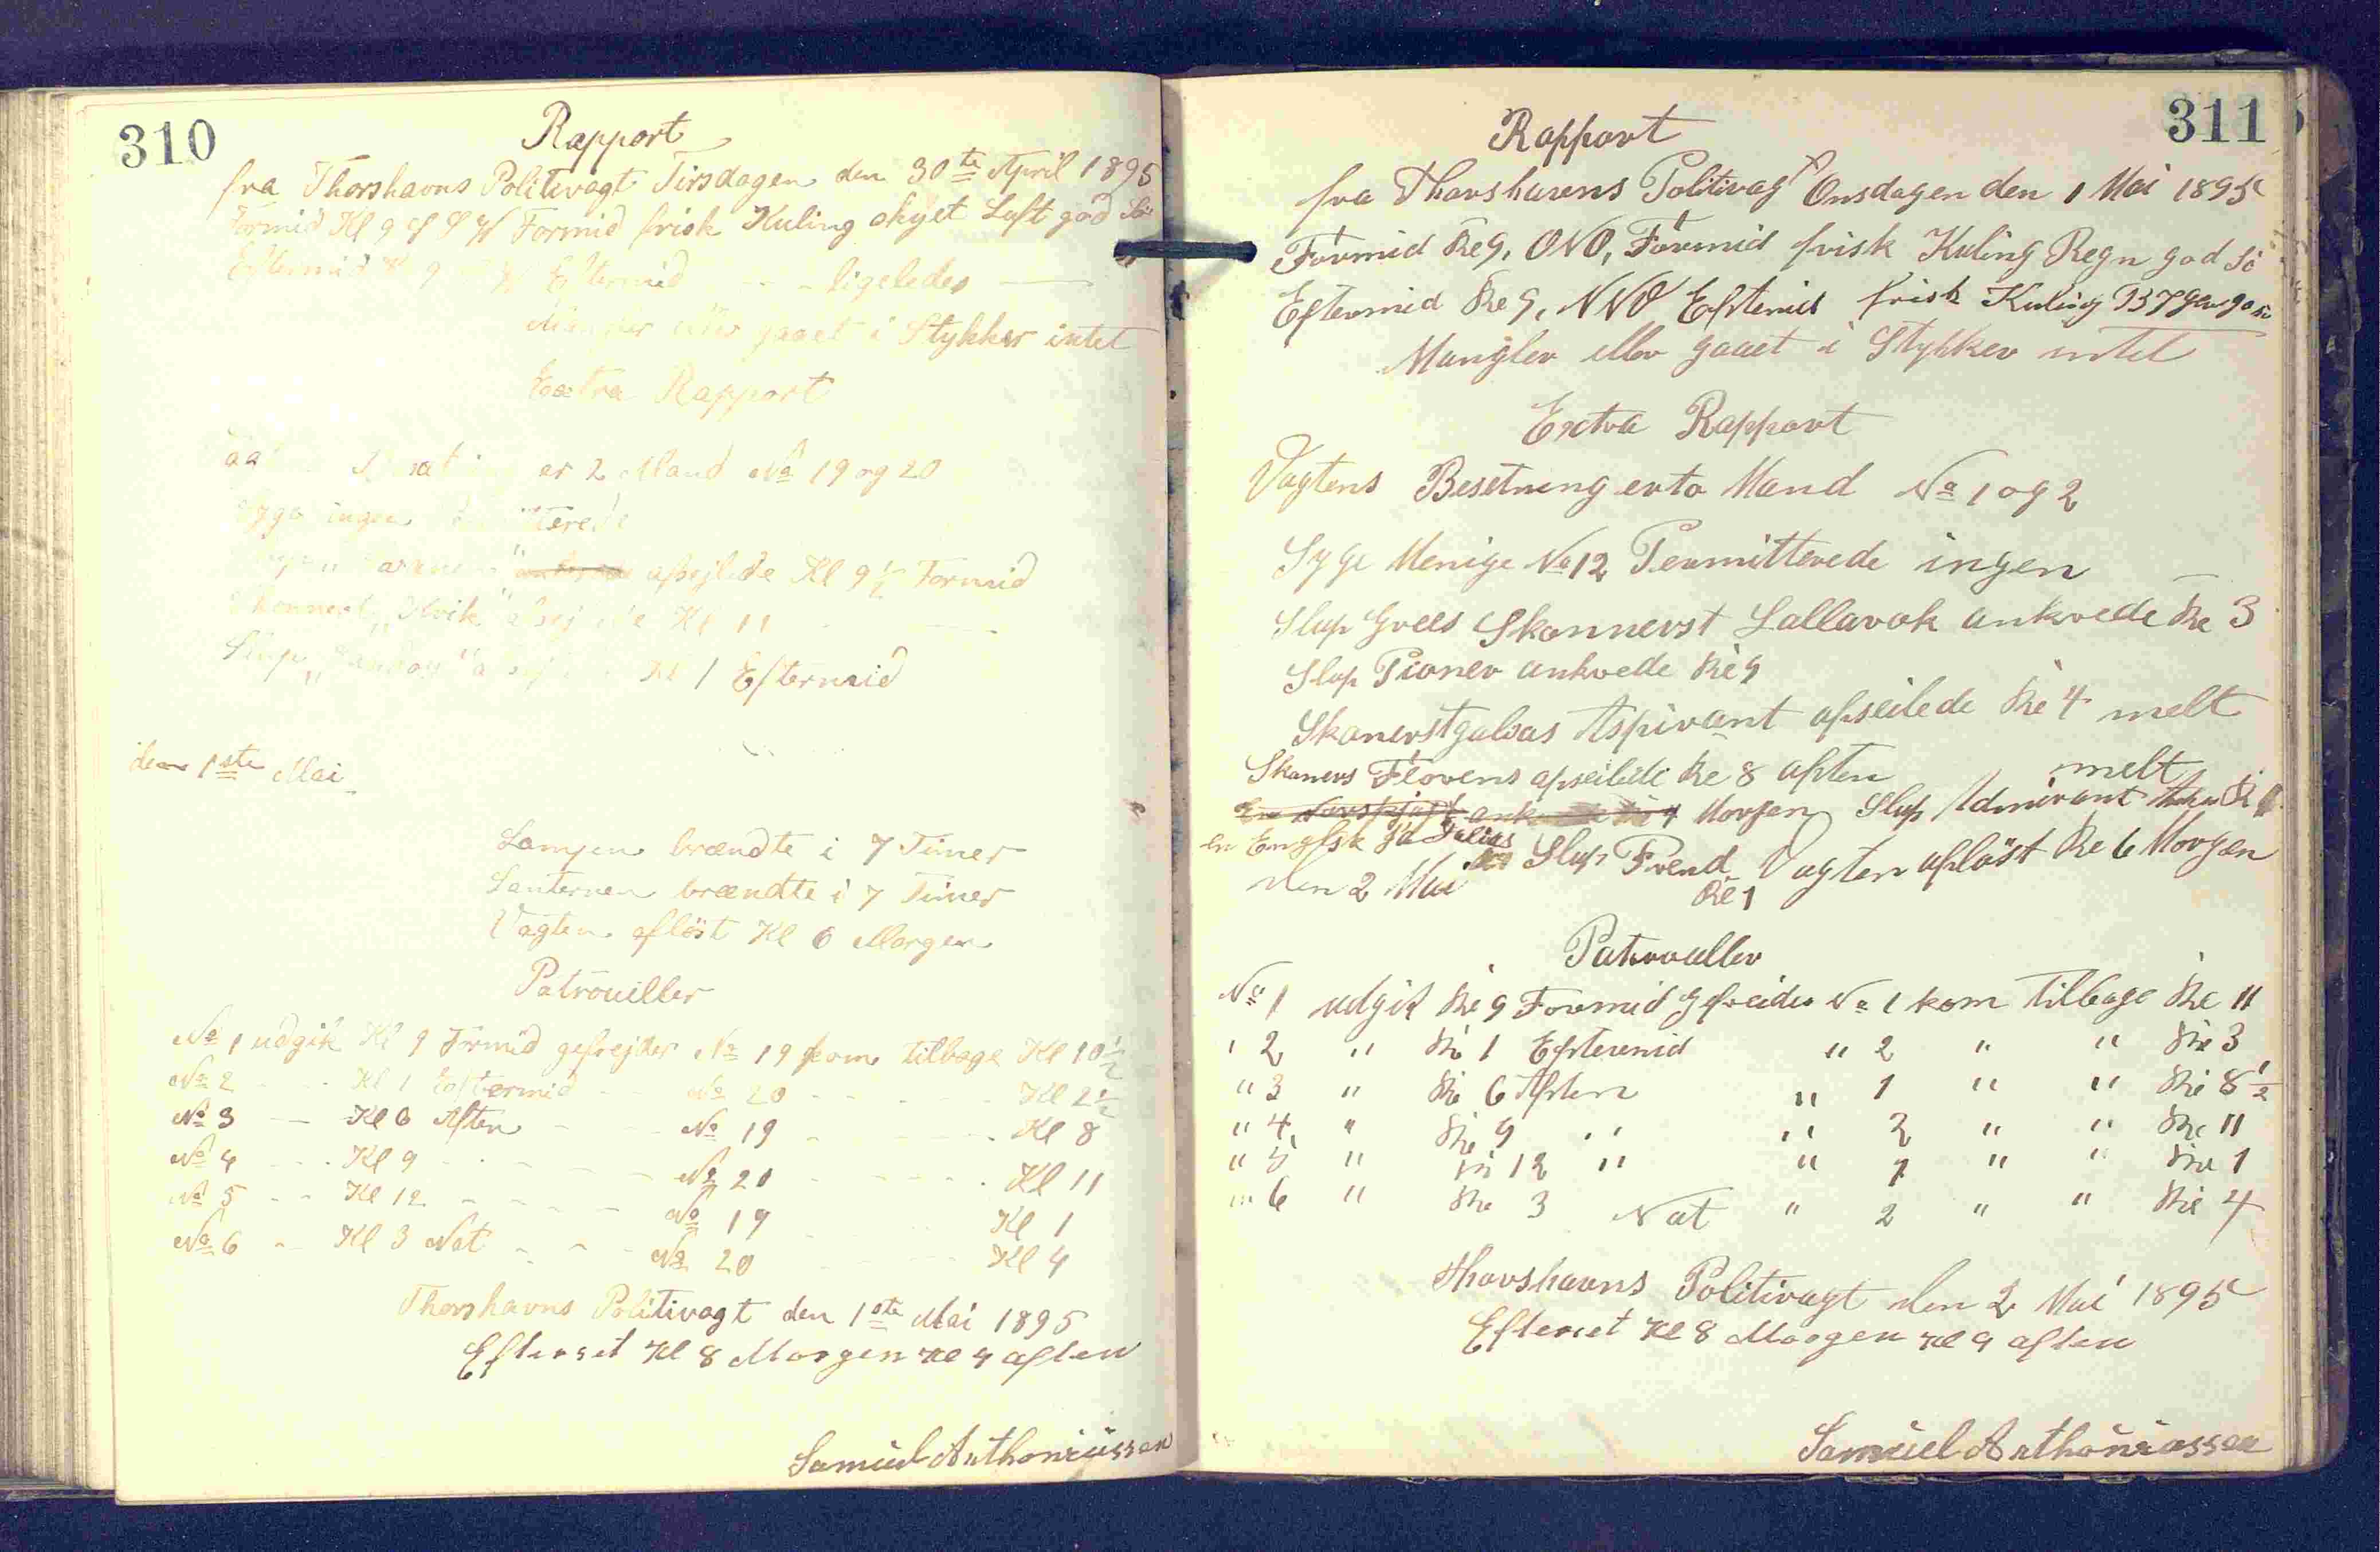 310
Rapport
fra Thorshavns Politivagt Tirsdagen den 30te April 1895
Formid Kl 9 S S W Formid frisk Kuling skyet Luft god Sö
Eftermid Kl 9 W Eftermid - - - ligeledes -
Mangler eller gaaet i Stykker intet
Extra Rapport
er 2 Mand No 19 og 20
Syge ingen
afsejlede Kl 9½ Formid
Skonnert „Kvik" Kl 11
Slup „Sandoy" Kl 1 Eftermid
den 1ste Mai
Lampen brændte i 7 Timer
Lanternen brændte i 7 Timer
Vagten aflöst Kl 6 Morgen
Patrouiller
No 1 udgik Kl 9 Formid gefrejder No 19 kom tilbage Kl 10½
No 2 - - - Kl 1 Eftermid - - No 20 - - - - - Kl 2½
No 3 - - Kl 6 Aften - - No 19 - - - - - Kl 8
No 4 - - - Kl 9 - - - - - No 20 - - - - - Kl 11
No 5 - - Kl 12 - - - - - No 19 Kl 1
No 6 - Kl 3 Nat - - - No 20 - - Kl 4
Thorshavns Politivagt den 1ste Mai 1895
Efterset Kl 8 Morgen Kl 9 aften
Samuel Anthoniussen
311
Rapport
fra Thorshavens Politivagt Onsdagen den 1 Mai 1895
Formid Kl 9, ONO, Formid frisk Kuling Regn god Sö
Eftermid Kl 9, NNO Eftermid frisk Kuling
Mangler eller gaaet i Stykker intet
Extra Rapport
Vagtens Besetning er to Mand No 1 og 2
Syge Menige No 12 Permitterede ingen
Slup Grees Skonnerst Lallarok ankrede Kl 3
Slup Pioner ankrede Kl 9
Skanerstgalias Aspirant afseilede Kl 4 melt
Skaners Florens afseilede Kl 8 aften melt
Morgen Slup Admirant
en Englsk Slup Frend Vagten aflöst Kl 6 Morgen
den 2 Mai Kl 1
Patrouller
No 1 udgik Kl 9 Formid Gefreider No 1 kom tilbage Kl 11
" 2 " Kl 1 Eftermid " 2 " " Kl 3
" 3 " Kl 6 Aften " 1 " " Kl 8½
" 4 " Kl 9 " " 2 " " Kl 11
" 5 " Kl 12 " " 1 " " Kl 1
" 6 " Kl 3 Nat " 2 " " Kl 4
Thorshavns Politivagt den 2 Mai 1895
Efterset Kl 8 Morgen Kl 9 aften
Samuel Anthoniassen